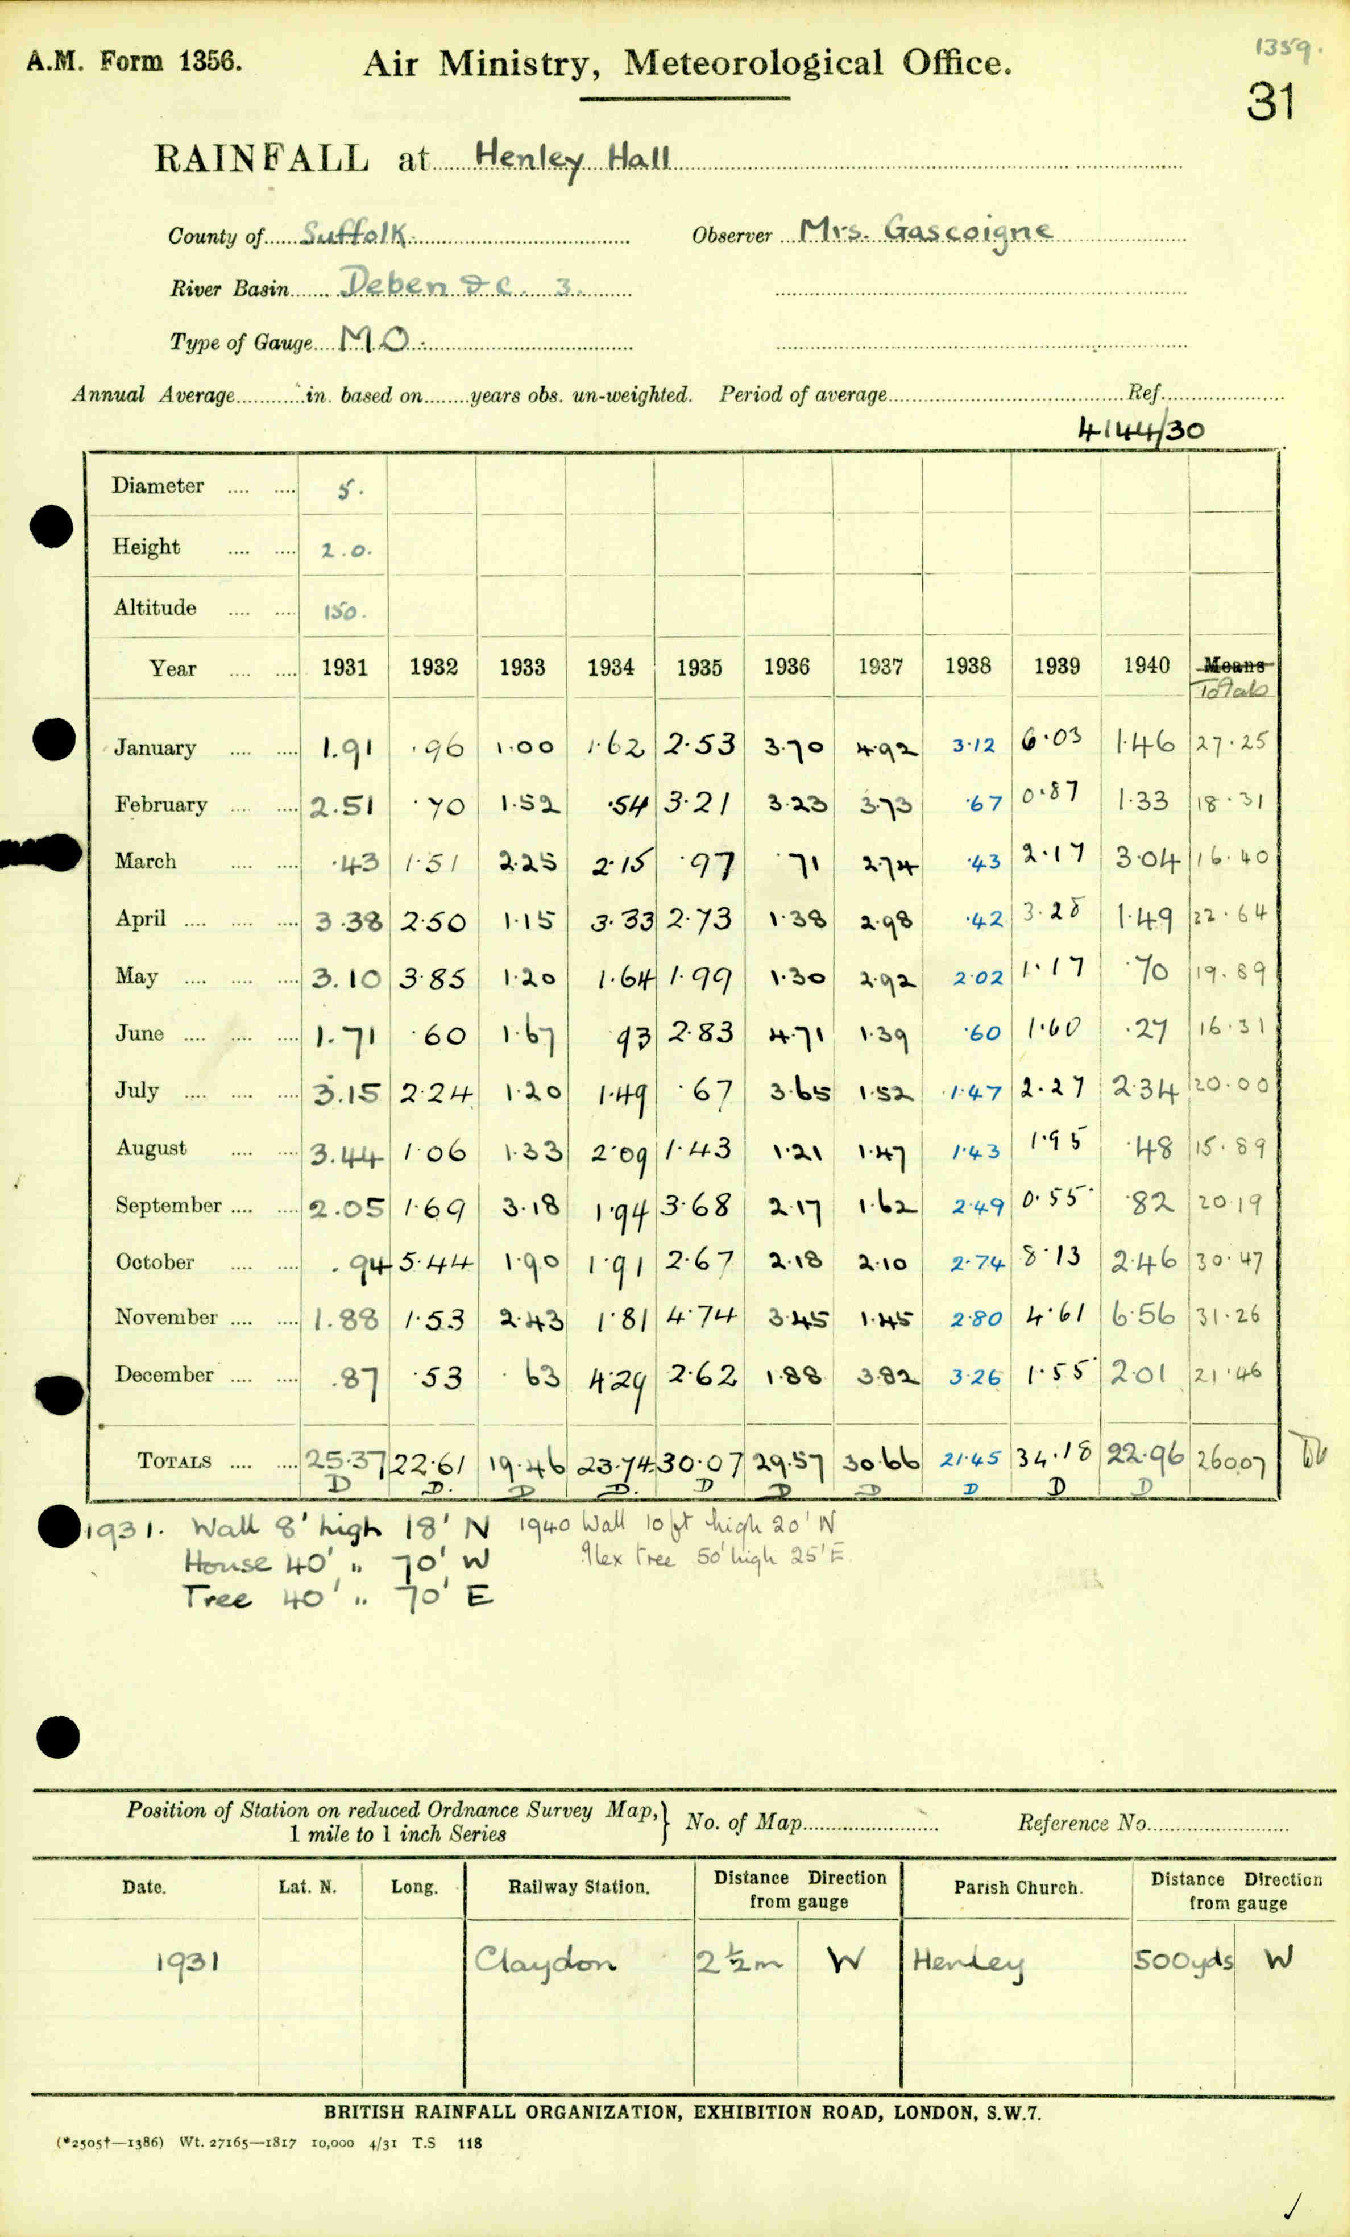 1359.
A.M. Form 1356. Air Ministry, Meteorological Office.
31
RAINFALL at Henley Hall
County of Suffolk. Observer Mrs. Gascoigne
River Basin Deben &c. 3.
Type of Gauge M.O.
Annual Average in. based on years obs. un-weighted. Period of average Ref.
4144/30
Diameter 5.
Height 2.0.
Altitude 150.
Year 1931 1932 1933 1934 1935 1936 1937 1938 1939 1940 Means
Totals
January 1.91 .96 1.00 1.62 2.53 3.70 4.92 3.12 6.03 1.46 27.25
February 2.51 .70 1.52 .54 3.21 3.23 3.73 .67 0.87 1.33 18.31
March .43 1.51 2.25 2.15 .97 .71 2.74 .43 2.17 3.04 16.40
April 3.38 2.50 1.15 3.33 2.73 1.38 2.98 .42 3.28 1.49 22.64
May 3.10 3.85 1.20 1.64 1.99 1.30 2.92 2.02 1.17 .70 19.89
June 1.71 .60 1.67 .93 2.83 4.71 1.39 .60 1.60 .27 16.31
July 3.15 2.24 1.20 1.49 .67 3.65 1.52 1.47 2.27 2.34 20.00
August 3.44 1.06 1.33 2.09 1.43 1.21 1.47 1.43 1.95 .48 15.89
September 2.05 1.69 3.18 1.94 3.68 2.17 1.62 2.49 0.55 .82 20.19
October .94 5.44 1.90 1.91 2.67 2.18 2.10 2.74 8.13 2.46 30.47
November 1.88 1.53 2.43 1.81 4.74 3.45 1.45 2.80 4.61 6.56 31.26
December .87 .53 .63 4.29 2.62 1.88 3.82 3.26 1.55 2.01 21.46
TOTALS 25.37 22.61 19.46 23.74 30.07 29.57 30.66 21.45 34.18 22.96 260.07
D D. D D. D D D D D D
1931. Wall 8' high 18' N 1940 Wall 10 ft high 20' N
House 40' " 70' W Ilex tree 50' high 25' E.
Tree 40' " 70' E
Position of Station on reduced Ordnance Survey Map, } No. of Map Reference No.
1 mile to 1 inch Series
Date. Lat. N. Long. Railway Station. Distance Direction from gauge Parish Church. Distance Direction from gauge
1931 Claydon 2½m W Henley 500yds W
BRITISH RAINFALL ORGANIZATION, EXHIBITION ROAD, LONDON, S.W.7.
(*2505†—1386) Wt. 27165—1817 10,000 4/31 T.S 118